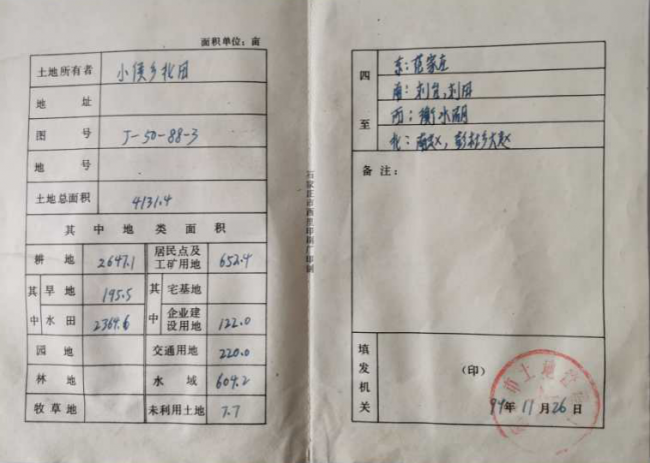 面积单位：亩
土地所有者 小侯乡北田
地 址
图 号 J-50-88-3
地 号
土地总面积 4131.4
其 中 地 类 面 积
耕 地 2647.1 居民点及工矿用地 652.4
其中 旱 地 195.5 其中 宅基地
水 田 2364.6 企业建设用地 122.0
园 地 交通用地 220.0
林 地 水 域 604.2
牧 草 地 未利用土地 7.7
四至
东：
南：
西：衡水湖
北：南赵，彭杜乡大赵
备 注：
填发机关
（印）
94年11月26日